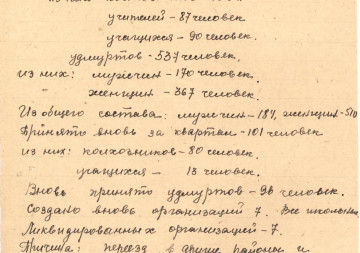 учителей - 87 человек
учащихся - 90 человек.
удмуртов - 537 человек,
из них: мужчин - 170 человек.
женщин - 367 человек.
Из общего состава: мужчин - 184, женщин - 510
Принято вновь за квартал - 101 человек
из них: колхозников - 80 человек.
учащихся - 13 человек.
Вновь принято удмуртов - 96 человек.
Создано вновь организаций 7. Все
Ликвидированных организаций - 7.
Причина: переезд в другие районы и